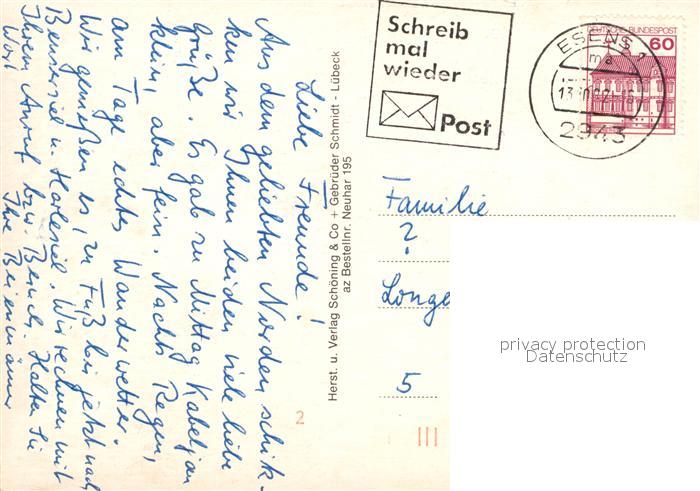 Liebe Freunde!
Aus dem geliebten Norden schik-
ken wir Ihnen beiden viele liebe
Grüße. Es gab zu Mittag Kabeljau
klein, aber fein. Nachts Regen,
am Tage echtes Wanderwetter.
Wir genießen es, zu Fuß bis jetzt nach
Bensersiel u. Harlesiel. Wir rechnen mit
Ihrem Anruf bzw. Besuch. Halten Sie
Wort
Ihre
Herst. u. Verlag Schöning & Co + Gebrüder Schmidt - Lübeck
az Bestellnr. Neuhar 195
Schreib
mal
wieder
Post
DEUTSCHE BUNDESPOST
60
ESENS 1
ma
2943
Familie
?
Longe
5
2
privacy protection
Datenschutz